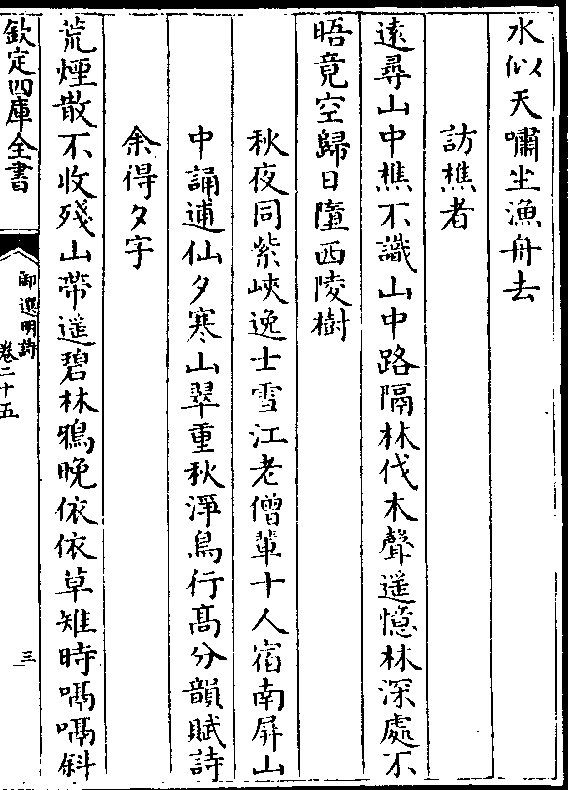 水似天嘯坐漁舟去
訪樵者
遠尋山中樵不識山中路隔林伐木聲遥憶林深處不
晤竟空歸日墮西陵樹
秋夜同紫峽逸士雪江老僧輩十人宿南屏山
中誦逋仙夕寒山翠重秋淨鳥行髙分韻賦詩
余得夕字
荒煙散不收殘山帶遥碧林鴉晚依依草雉時喁喁斜
欽定四庫全書
御選明詩
卷二十五
三